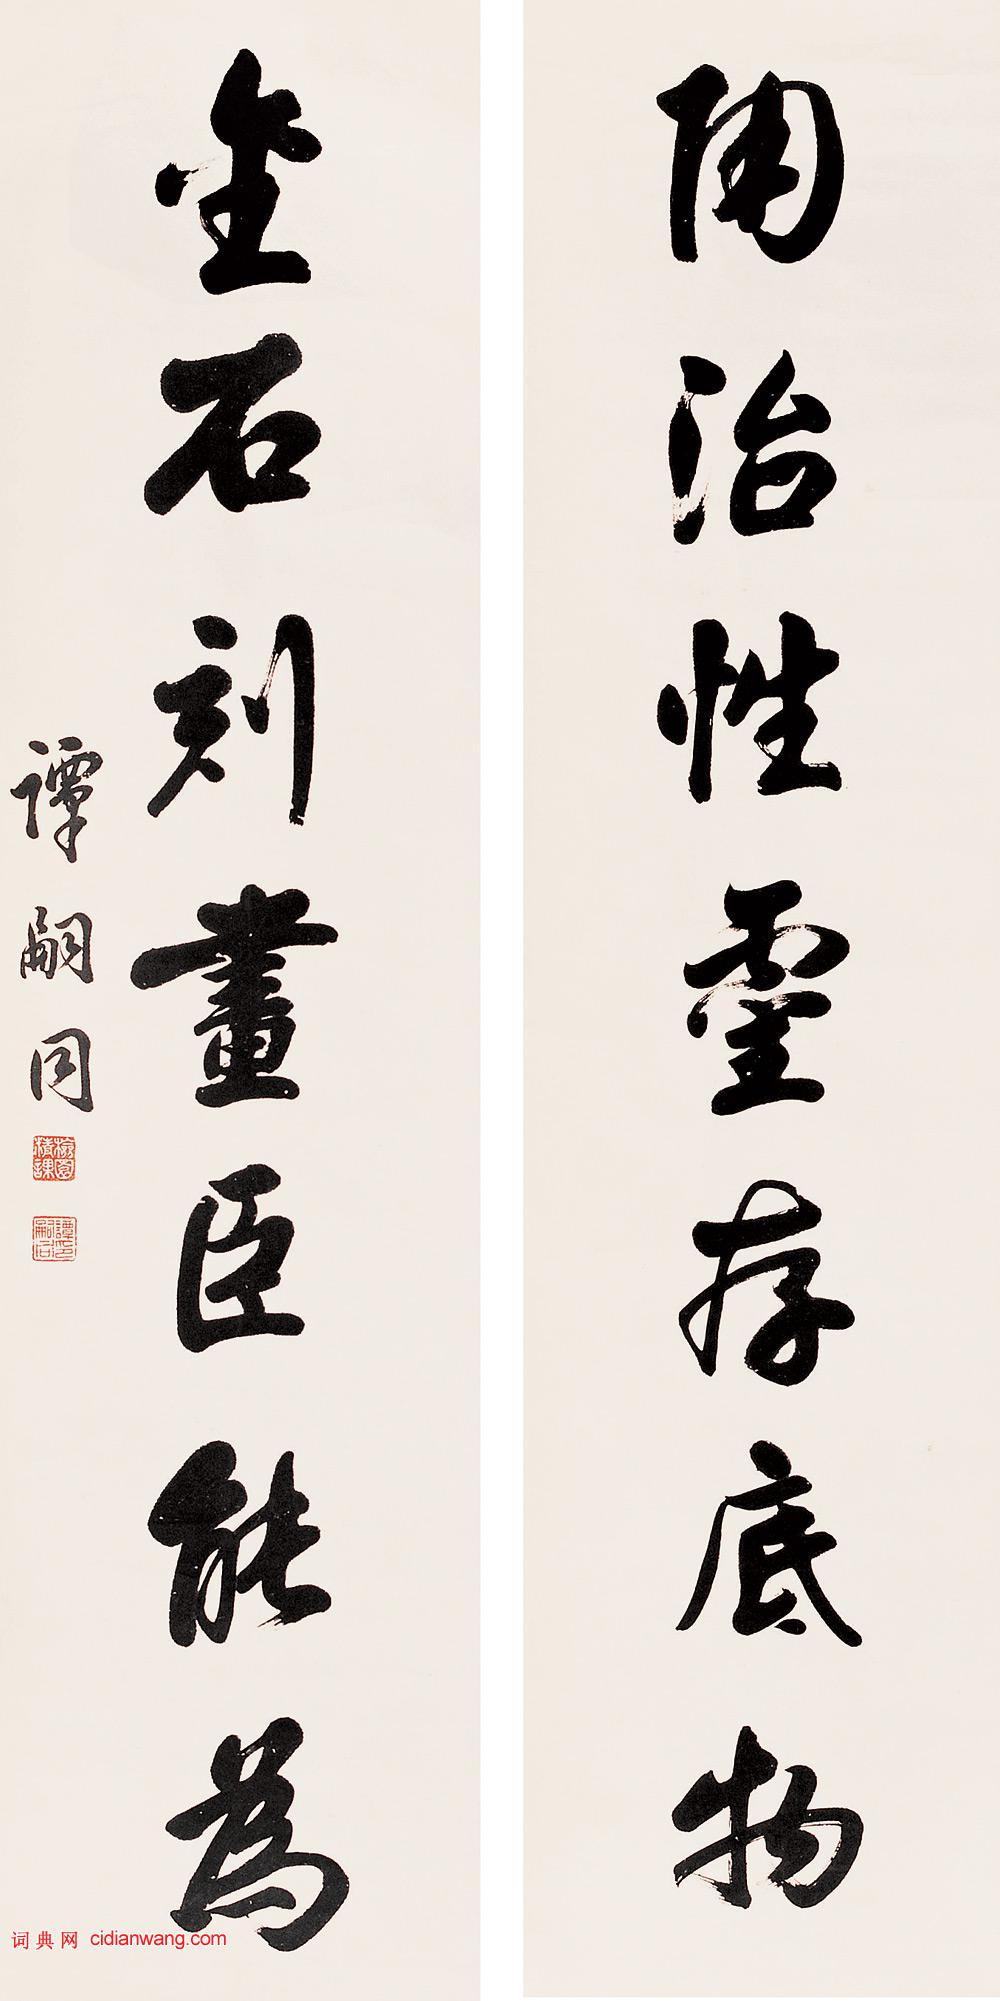 陶冶性靈存底物
金石刻畫臣能為
譚嗣同
詞典网 cidianwang.com